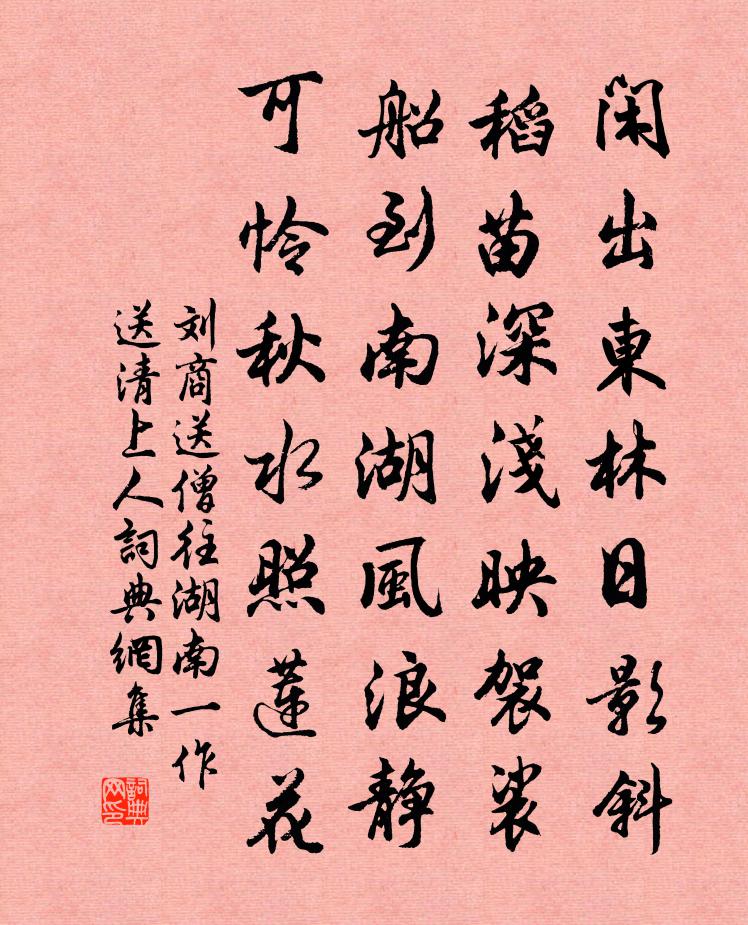 閑出東林日影斜
稻苗深淺映袈裟
船到南湖風浪静
可怜秋水照蓮花
刘商送僧往湖南一作
送清上人詞典網集
詞典网印